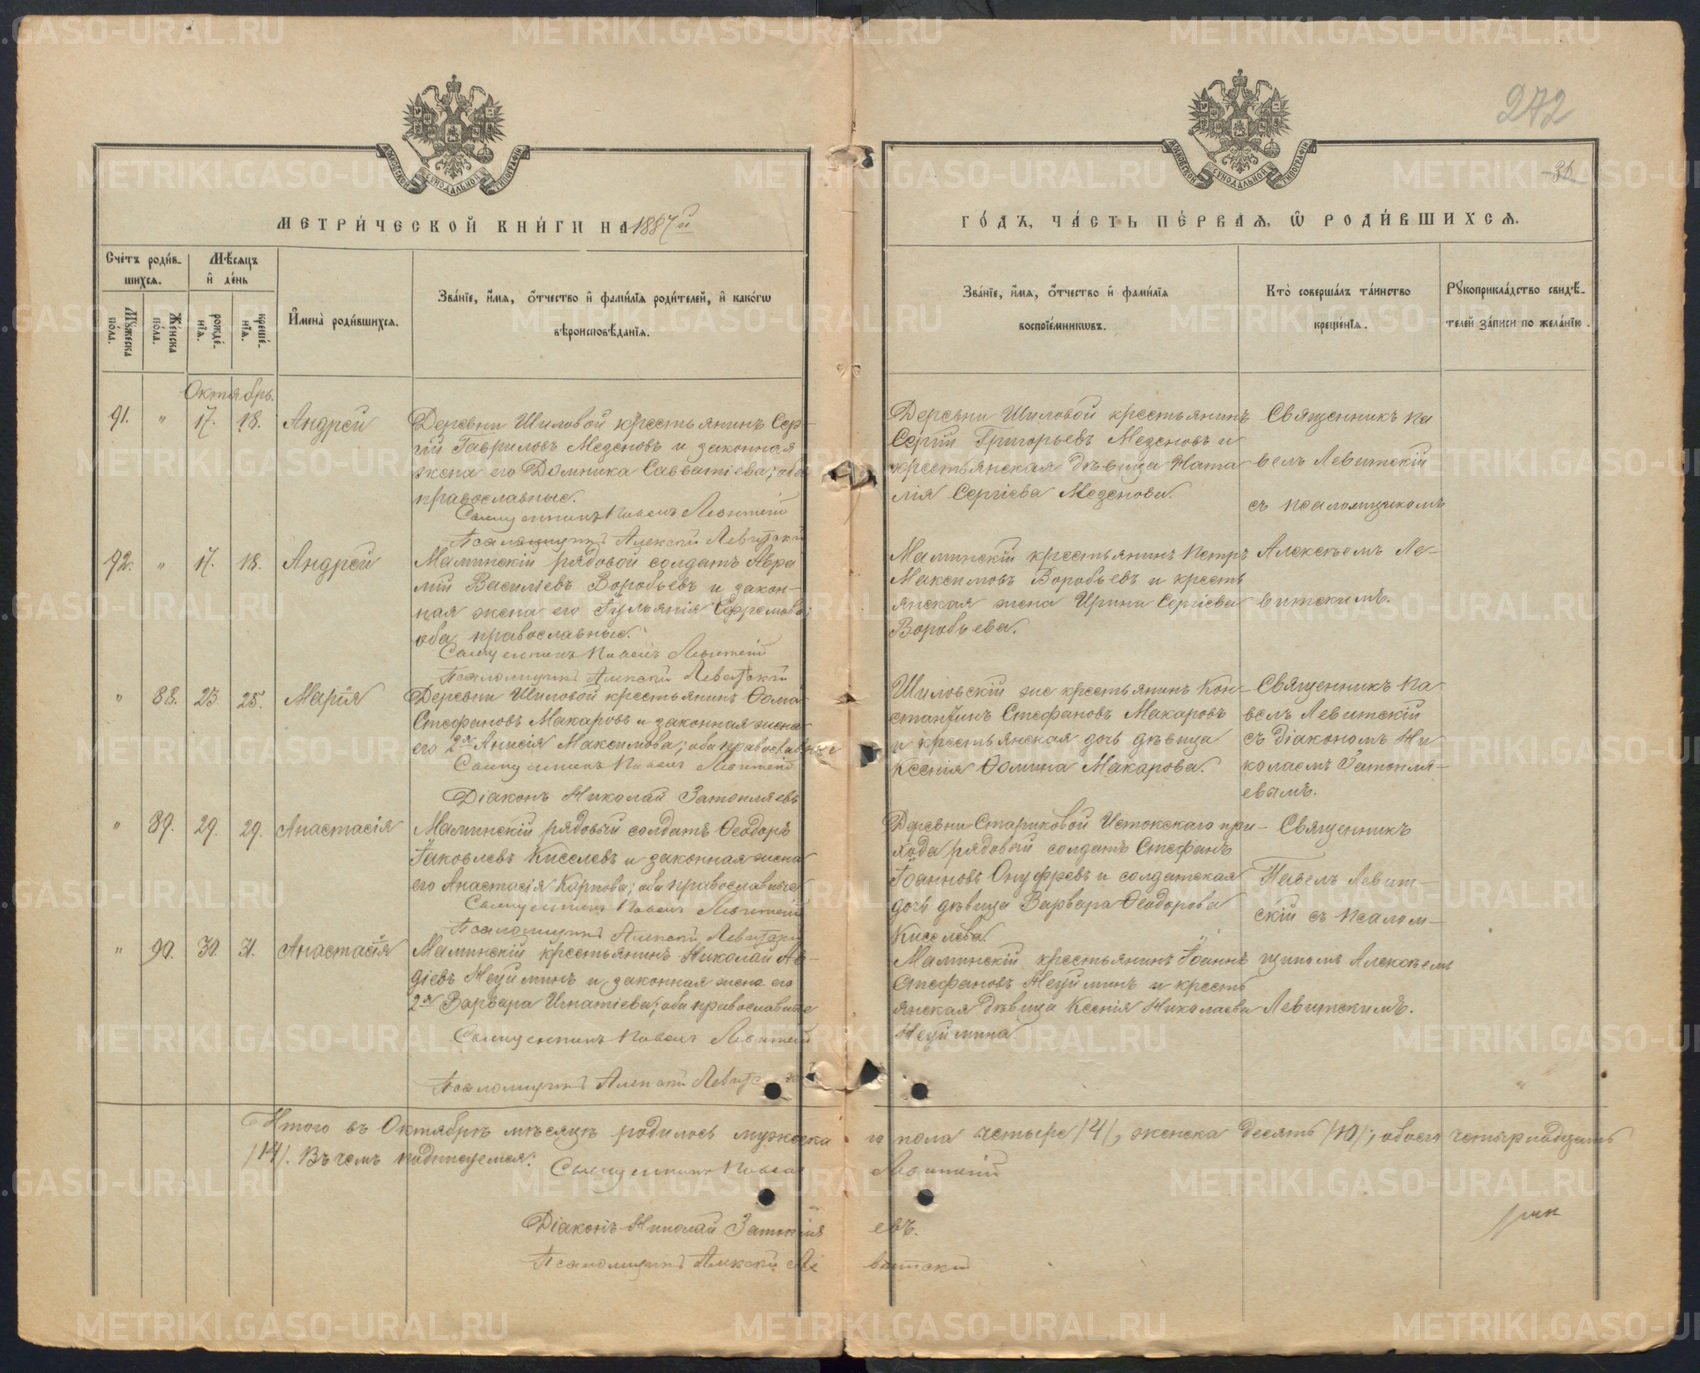 272
36
МЕТРИ́ЧЕСКОЙ КНИ́ГИ НА 1887й
ГО́ДЪ, ЧА́СТЬ ПЕ́РВАѦ, Ѽ РОДИ́ВШИХСѦ.
Счетъ роди́в-
шихсѧ.
Мѣсѧцъ
и҆ де́нь
Мꙋжеска
по́ла.
Же́нска
по́ла.
рожде́-
нїѧ.
креще́-
нїѧ.
И҆мена̀ роди́вшихсѧ.
Зва́нїе, и҆́мѧ, ѻ҆́тчество и҆ фами́лїѧ роди́телей, и҆ како́гѡ
вѣроисповѣ́данїѧ.
Зва́нїе, и҆́мѧ, ѻ҆́тчество и҆ фами́лїѧ
воспрїе́мникѡвъ.
Кто̀ соверша́лъ та́инство
креще́нїѧ.
Рꙋкоприкла́дство свидѣ́-
телей за́писи по жела́нїю.
Октябрь.
91. " 17. 18. Андрей
Деревни Шиловой крестьянинъ Сер-
гій Гавриловъ Мезеновъ и законная
жена его Домника Савватіева; оба
православные.
Священникъ Павелъ Левитскій
Псаломщикъ Алексій Левитскій
Деревни Шиловой крестьянинъ
Сергій Григорьевъ Мезеновъ и
крестьянская дѣвица Ната-
лія Сергіева Мезенова.
Священникъ Па-
велъ Левитскій
съ псаломщикомъ
92. " 17. 18. Андрей
Маминскій рядовой солдатъ Авра
мій Васильевъ Воробьевъ и закон-
ная жена его Іульянія Ефремова;
оба православные.
Священникъ Павелъ Левитскій
Псаломщикъ Алексій Левитскій
Маминскій крестьянинъ Петръ
Максимовъ Воробьевъ и кресть
янская жена Ирина Сергіева
Воробьева.
Алексѣемъ Ле-
витскимъ.
" 88. 23. 25. Марія
Деревни Шиловой крестьянинъ Ѳома
Стефановъ Макаровъ и законная жена
его 2я Анисія Максимова; оба православные
Священникъ Павелъ Левитскій
Діаконъ Николай Затопляевъ
Шиловскій же крестьянинъ Кон-
стантинъ Стефановъ Макаровъ
и крестьянская дочь дѣвица
Ксенія Ѳомина Макарова.
Священникъ Па
велъ Левитскій
съ діакономъ Ни
колаемъ Затопля-
евымъ.
" 89. 29. 29. Анастасія
Маминскій рядовый солдатъ Ѳеодоръ
Іаковлевъ Киселевъ и законная жена
его Анастасія Карпова; оба православные
Священникъ Павелъ Левитскій
Псаломщикъ Алексій Левитскій
Деревни Стариковой Истокскаго при-
хода рядовый солдатъ Стефанъ
Іоанновъ Онуфревъ и солдатская
дочь дѣвица Варвара Ѳеодорова
Киселева.
Священникъ
Павелъ Левит-
скій съ псалом-
" 90. 30. 31. Анастасія
Маминскій крестьянинъ Николай Ав-
діевъ Неуйминъ и законная жена его
2я Варвара Игнатіева; оба православные
Священникъ Павелъ Левитскій
Псаломщикъ Алексій Левитскій
Маминскій крестьянинъ Іоаннъ
Стефановъ Неуйминъ и кресть
янская дѣвица Ксенія Николаева
Неуймина.
щикомъ Алексѣемъ
Левитскимъ.
Итого въ Октябрѣ мѣсяцѣ родилось мужеска го пола четыре /4/, женска десять /10/; обоего четырнадцать
/14/. Въ чемъ подписуемся:
Священникъ Павелъ Левитскій
Діаконъ Николай Затопляевъ.
Псаломщикъ Алексій Левитскій